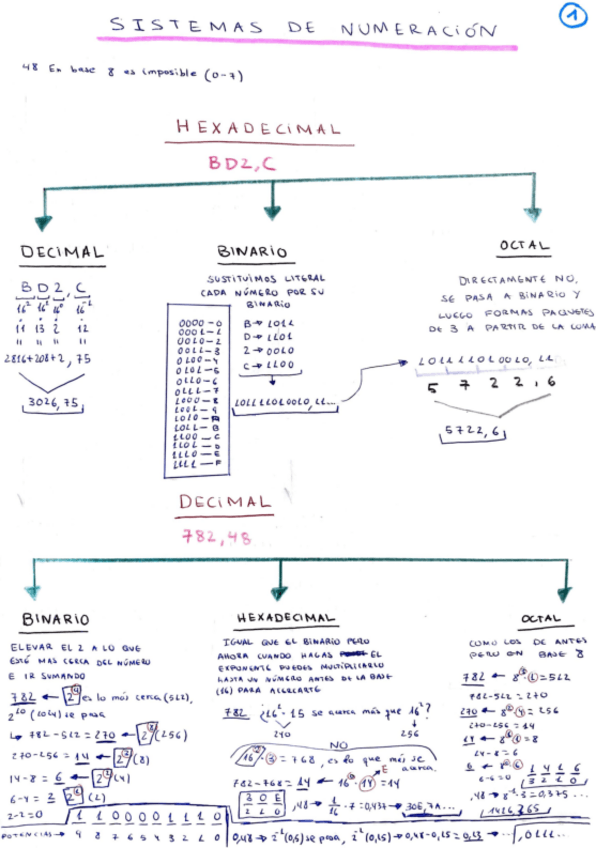 SISTEMAS DE NUMERACIÓN
1
48 En base 8 es imposible (0-7)
HEXADECIMAL
BD2,C
DECIMAL
B D 2, C
16² 16¹ 16⁰ 16⁻¹
11 13 2 12
2816+208+2, 75
3026,75
BINARIO
SUSTITUIMOS LITERAL
CADA NÚMERO POR SU
BINARIO
0000-0
0001-1
0010-2
0011-3
0100-4
0101-5
0110-6
0111-7
1000-8
1001-9
1010-A
1011-B
1100-C
1101-D
1110-E
1111-F
B→1011
D→1101
2→0010
C→1100
101111010010,11...
OCTAL
DIRECTAMENTE NO,
SE PASA A BINARIO Y
LUEGO FORMAS PAQUETES
DE 3 A PARTIR DE LA COMA
101111010010,11
5 7 2 2,6
5722,6
DECIMAL
782,48
BINARIO
ELEVAR EL 2 A LO QUE
ESTÉ MAS CERCA DEL NÚMERO
E IR SUMANDO
782 ← 2⁹ es lo más cerca (512),
2¹⁰ (1024) se pasa
↳ 782-512=270 ← 2⁸ (256)
270-256=14 ← 2³ (8)
14-8=6 ← 2² (4)
6-4=2 2¹ (2)
2-2=0 1 1 0 0 0 0 1 1 1 0
POTENCIAS→ 9 8 7 6 5 4 3 2 1 0
HEXADECIMAL
IGUAL QUE EL BINARIO PERO
AHORA CUANDO HAGAS EL
EXPONENTE PUEDES MULTIPLICARLO
HASTA UN NÚMERO ANTES DE LA BASE
(16) PARA ACERCARTE
782 ¿16¹·15 se acerca más que 16²?
240 256
NO
16²·3=768, es lo que más se
acerca.
782-768=14 ← 16⁰·14=14
E
30E
,48→ 1/16·7=0,437→ 30E,7A...
0,48→2⁻¹(0,5) se pasa, 2⁻²(0,25)→0,48-0,25=0,23→ ...,0111...
OCTAL
COMO LOS DE ANTES
PERO EN BASE 8
782 ← 8³·1=512
782-512=270
270 ← 8²·4=256
270-256=14
14 ← 8¹·1=8
14-8=6
6 ← 8⁰·6
6-6=0
1 4 1 6
3 2 1 0
,48→8⁻¹·3=0,375...
1416,365